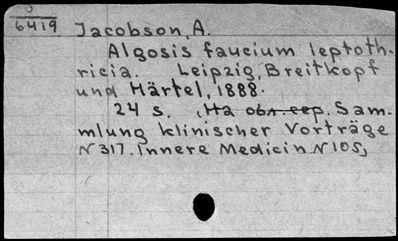 J
6419
Jacobson, A.
Algosis faucium leptoth-
ricia. Leipzig, Breitkopf
und Härtel, 1888.
24 s. (На обл. сер. Sam-
mlung klinischer Vorträge
N 317. Innere Medicin N 105)